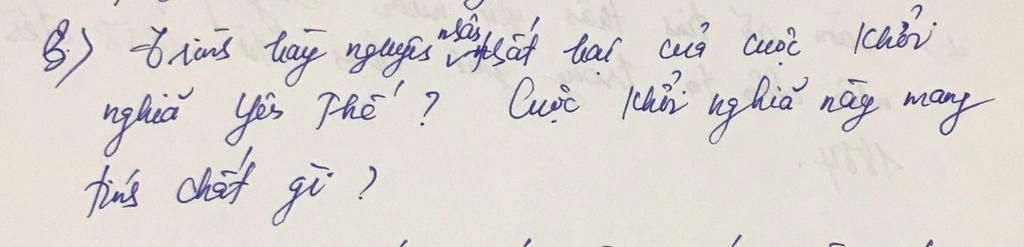 8) Trình bày nguyên nhân thất bại của cuộc khởi
nghĩa Yên Thế? Cuộc khởi nghĩa này mang
tính chất gì?